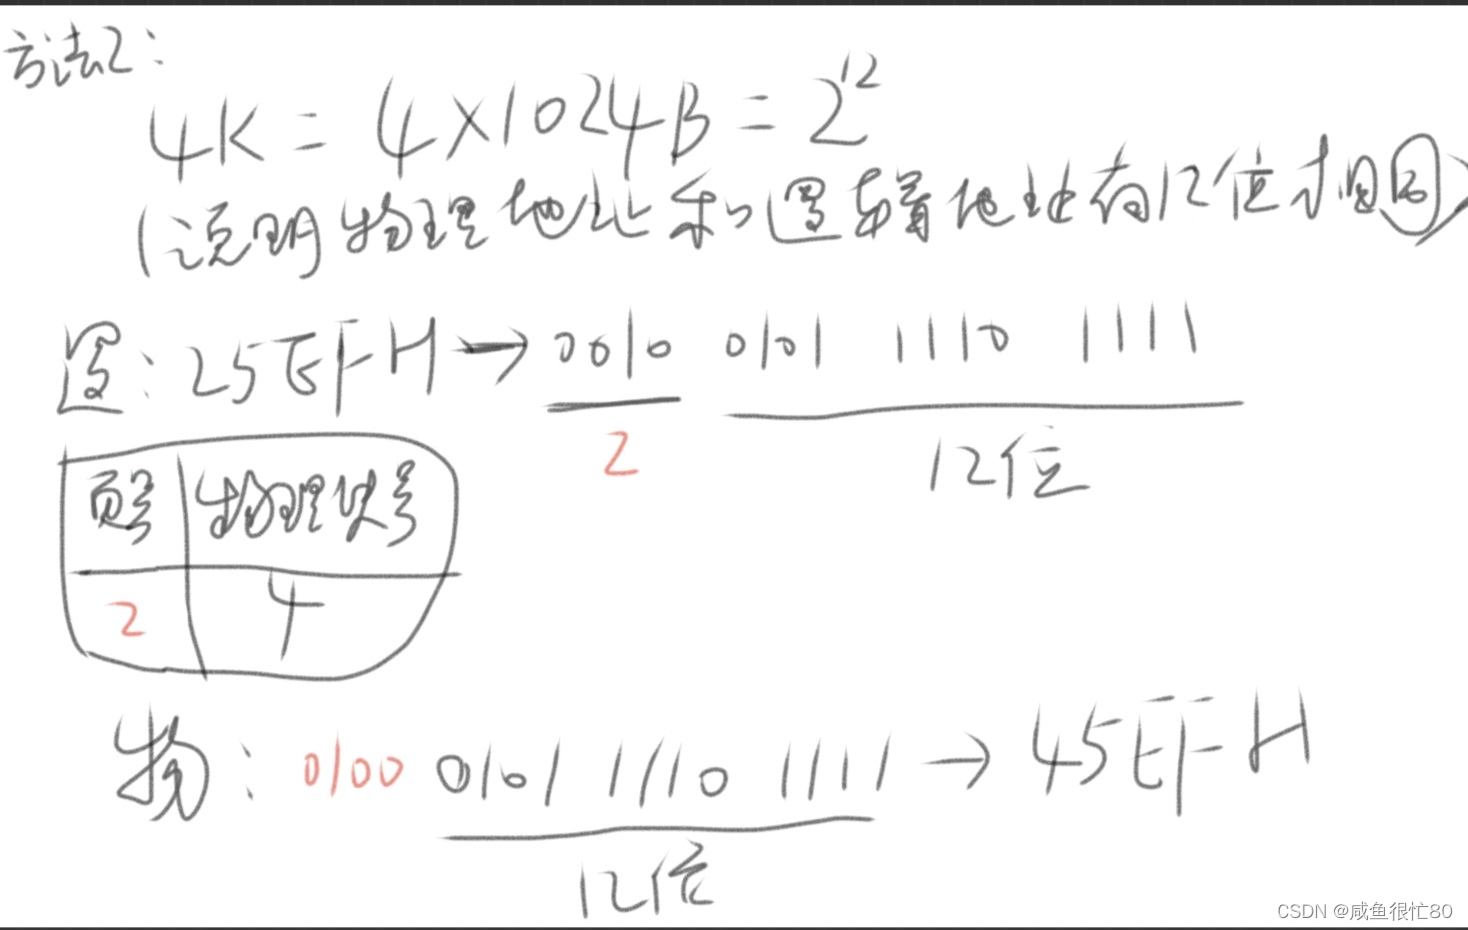 方法2：
4K = 4×1024B = 2^12
(说明物理地址和逻辑地址有12位相同)
逻：25EFH → 0010 0101 1110 1111
2 12位
页号 物理块号
2 4
物：0100 0101 1110 1111 → 45EFH
12位
CSDN @咸鱼很忙80